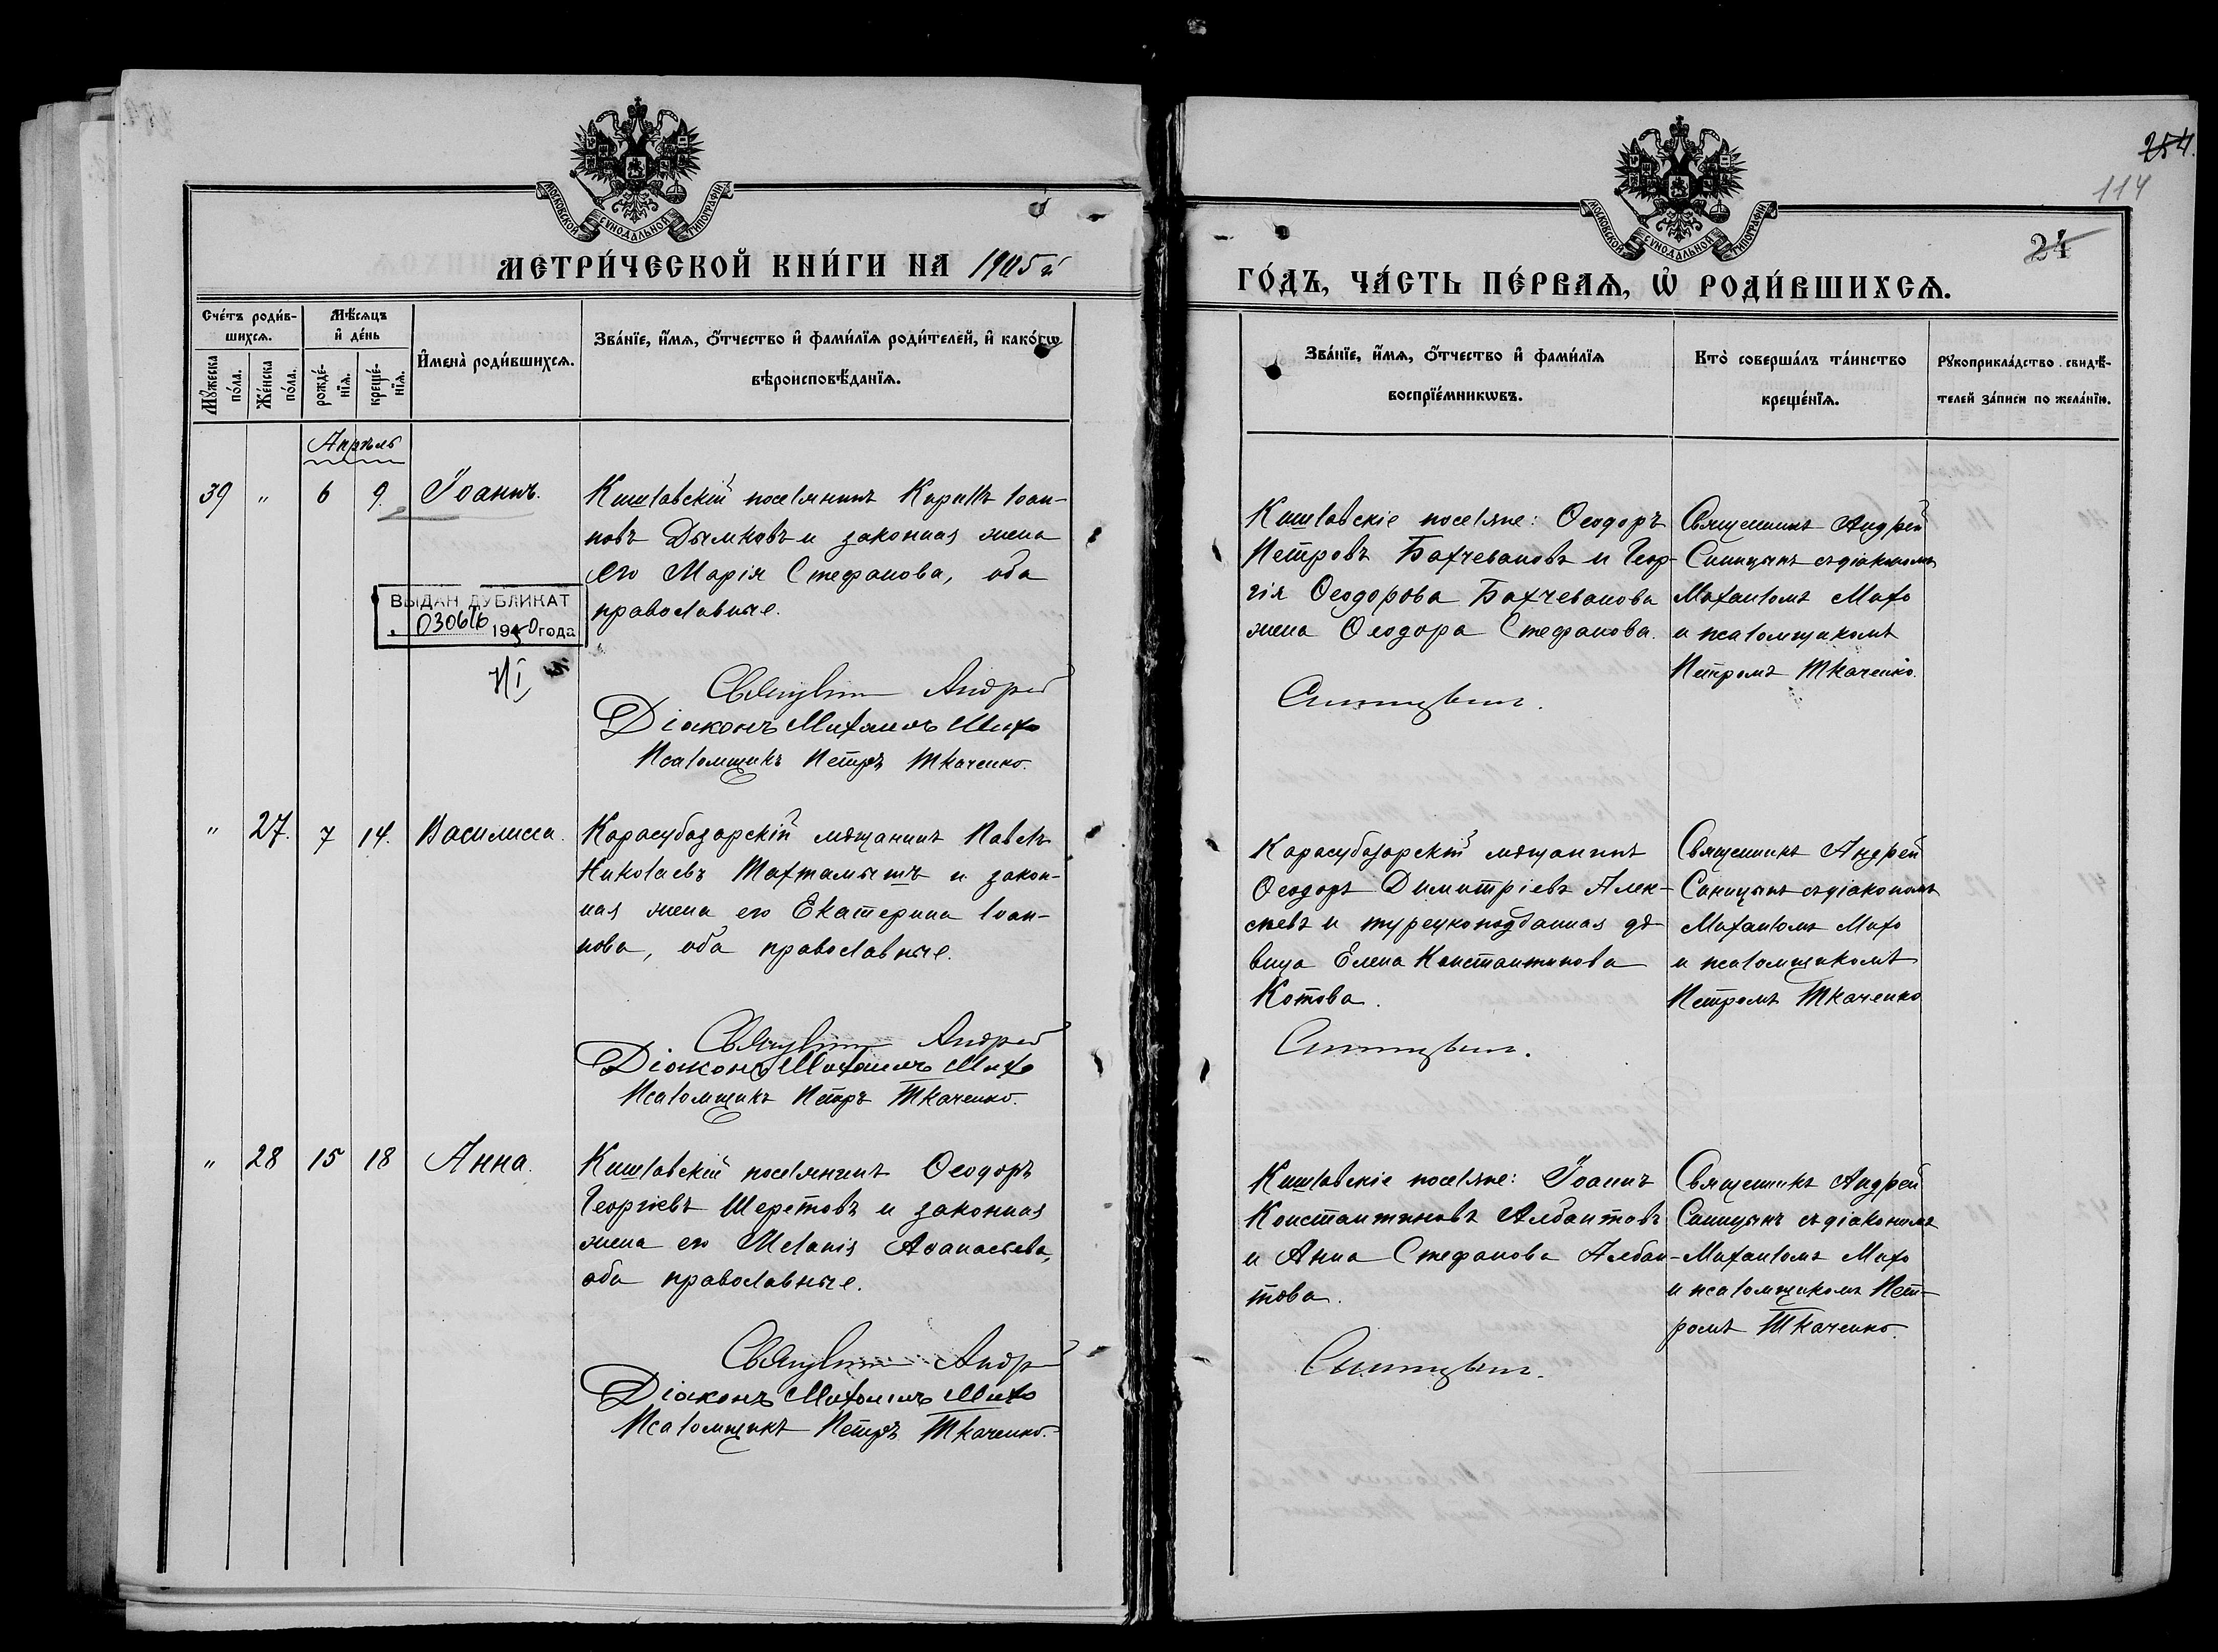 254.
114
МОСКОВСКОЙ СѴНОДАЛЬНОЙ ТИПОГРАФІИ
МЕТРИ́ЧЕСКОЙ КНИ́ГИ НА 1905 й
Сче́тъ роди́в-
шихсѧ.
Мꙋ́жеска
по́ла.
Же́нска
по́ла.
Мѣ́сѧцъ
и҆ де́нь
рожде́-
нїѧ.
креще́-
нїѧ.
И҆мена̀ роди́вшихсѧ.
Зва́нїе, и҆́мѧ, ѻ҆́тчество и҆ фами́лїѧ роди́телей, и҆ како́гѡ
вѣроисповѣ́данїѧ.
Апрѣль
39 " 6 9. Іоаннъ.
Кишлавскій поселянинъ Кириллъ Іоан-
новъ Дымковъ и законная жена
его Марія Стефанова, оба
православные.
ВЫДАН ДУБЛИКАТ
1950 года
Священникъ Андрей
Діаконъ Михаилъ Михо
Псаломщикъ Петръ Ткаченко.
" 27. 7 14. Василисса.
Карасубазарскій мѣщанинъ Павелъ
Николаевъ Тахтамышъ и закон-
ная жена его Екатерина Іоан-
нова, оба православные.
Священникъ Андрей
Діаконъ Михаилъ Михо
Псаломщикъ Петръ Ткаченко.
" 28 15 18 Анна.
Кишлавскій поселянинъ Ѳеодоръ
Георгіевъ Шеретовъ и законная
жена его Меланія Аѳанасьева,
оба православные.
Священникъ Андрей
Діаконъ Михаилъ Михо
Псаломщикъ Петръ Ткаченко.
МОСКОВСКОЙ СѴНОДАЛЬНОЙ ТИПОГРАФІИ
24
ГО́ДЪ, ЧА́СТЬ ПЕ́РВАѦ, Ѡ҆ РОДИ́ВШИХСѦ.
Зва́нїе, и҆́мѧ, ѻ҆́тчество и҆ фами́лїѧ
воспрїе́мникѡвъ.
Кто̀ соверша́лъ та́инство
креще́нїѧ.
Рꙋкоприкла́дство свидѣ́-
телей за́писи по жела́нїю.
Кишлавскіе поселяне: Ѳеодоръ
Петровъ Бахчевановъ и Геор-
гія Ѳеодорова Бахчеванова
жена Ѳеодора Стефанова.
Синицынъ.
Священникъ Андрей
Синицынъ съ діакономъ
Михаиломъ Михо
и псаломщикомъ
Петромъ Ткаченко.
Карасубазарскій мѣщанинъ
Ѳеодоръ Димитріевъ Алек-
сѣевъ и турецкоподданная дѣ-
вица Елена Константинова
Котова.
Синицынъ.
Священникъ Андрей
Синицынъ съ діакономъ
Михаиломъ Михо
и псаломщикомъ
Петромъ Ткаченко
Кишлавскіе поселяне: Іоаннъ
Константиновъ Албантовъ
и Анна Стефанова Албан-
това.
Синицынъ.
Священникъ Андрей
Синицынъ съ діакономъ
Михаиломъ Михо
и псаломщикомъ Пет-
ромъ Ткаченко.